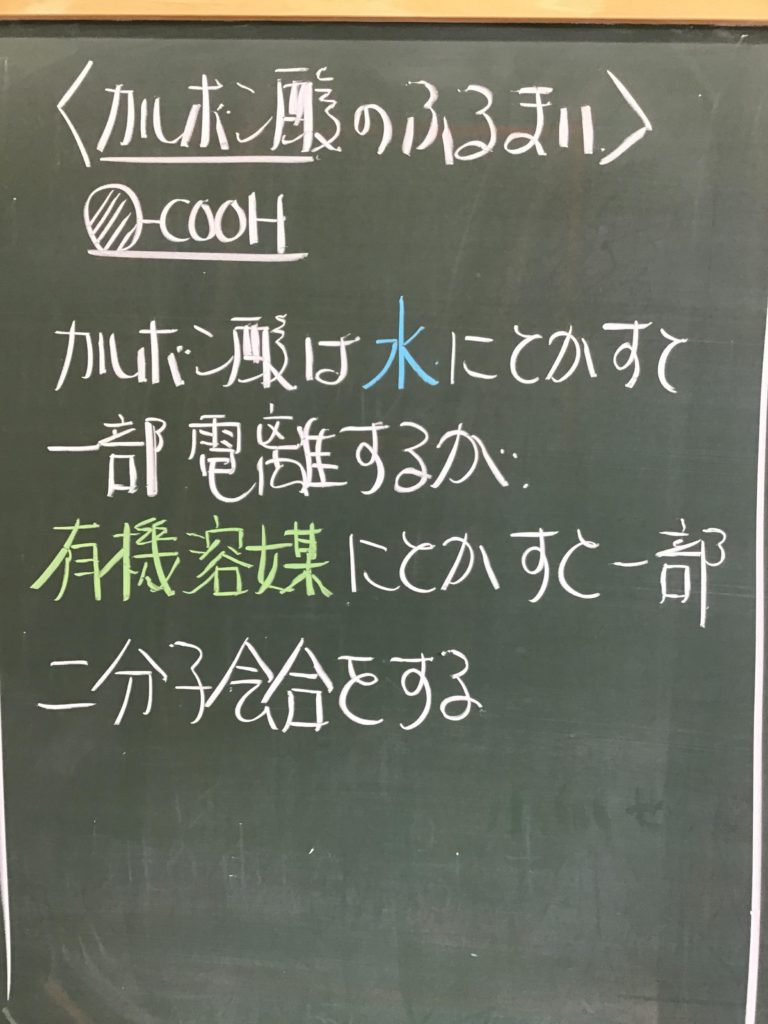 〈カルボン酸のふるまい〉
-COOH
カルボン酸は水にとかすと
一部電離するが、
有機溶媒にとかすと一部
二分子会合をする